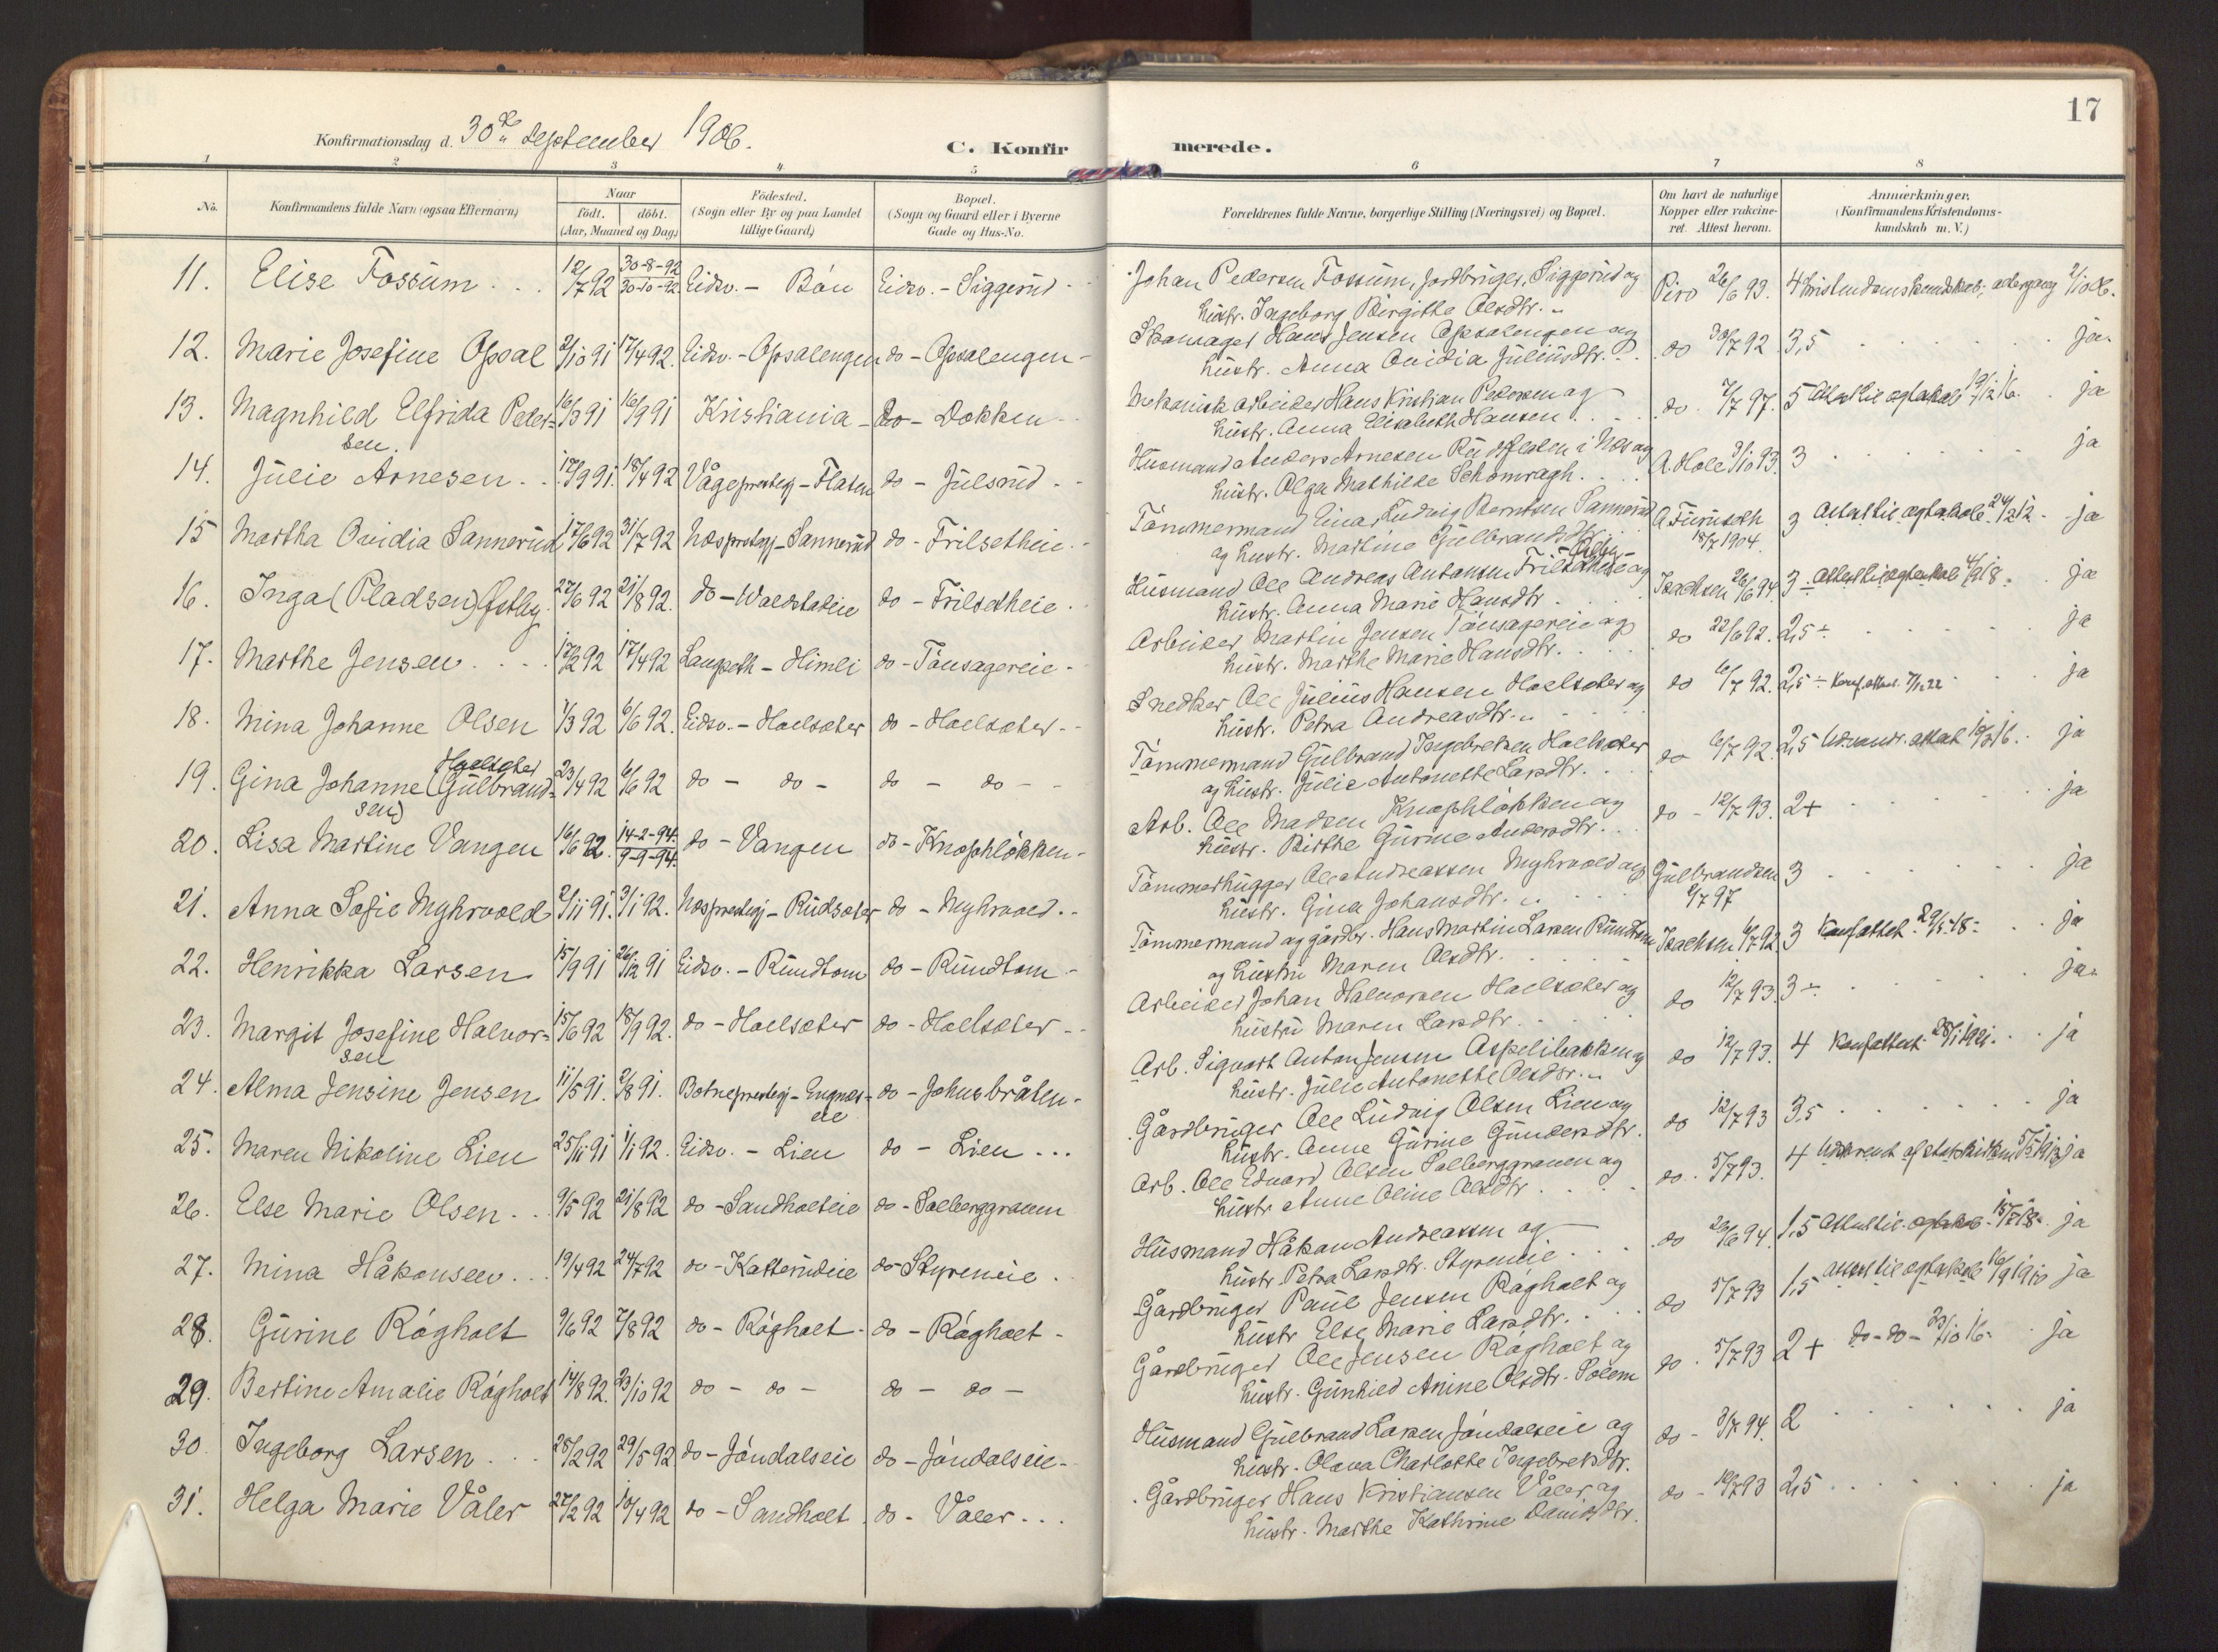 17
Konfirmationsdag d. 30 september 1906.
C. Konfirmerede.
1 2 3 4 5 6 7 8
No.
Konfirmandens fulde Navn (ogsaa Efternavn)
Naar
født. døbt.
(Aar, Maaned og Dag)
Födested.
(Sogn eller By og paa Landet
tillige Gaard)
Bopæl.
(Sogn og Gaard eller i Byerne
Gade og Hus-No.
Forældrenes fulde Navne, borgerlige Stilling (Næringsvei) og Bopæl.
Om havt de naturlige
Kopper eller vakcine-
ret. Attest herom.
Anmærkninger.
(Konfirmandens Kristendoms-
kundskab m. V.)
11. Elise Fossum 12/7 92 30-8-92 30-10-92 Eidsv. - Bön Eidsv. - Siggerud Johan Pedersen Fossum, Jordbruger, Siggerud og
Hustr. Ingeborg Birgitte Olsdtr. Piro 26/6 93. 4 Kristendomskundskab,
12. Marie Josefine Opsal 2/10 91 17/4 92. Eidsv. - Opsalengen do - Opsalengen - Skomager Hans Jensen Opsalengen og
Hustr. Anna Ovidia Juliusdtr. do 30/7 92 3,5 ja
13. Magnhild Elfrida Peder-
sen. 16/3 91 16/9 91 Kristiania - do - Dokken Mekanisk arbeider Hans Kristian Pedersen og
Hustr. Anna Elisabeth Hansen do. 7/7 97. 5 ja
14. Julie Arnesen 17/9 91. 18/4 92 Vågeprestegj - Flaten do - Julsrud Husmand Anders Arnesen i Nes og
Hustr. Olga Mathilde A. Hole 3/10 93. 3 ja
15 Martha Ovidia Sannerud 17/6 92 31/7 92 Nesprestegj - Sannerud do - Frilsetheie Tömmermand Einar Ludvig Berntsen Sannerud
og Hustr. Martine Gulbrandsdtr. A. Furuseth
18/7 1904. 3 Attest til ægteskab 24/2 12 - ja
16. Inga (Pladsen) Østby 27/6 92 21/8 92. do - Woldstadeie do - Frilsetheie Husmand Ole Andreas Antonsen Frilsetheie og
Hustr. Anna Marie Hansdtr. Isachsen 26/6 94. 3 - Attest til ægteskab ja
17. Marthe Jensen 17/2 92 17/4 92 Langseth - Himli do - Tönsagereie - Arbeider Martin Jensen Tönsagereie og
Hustr. Marthe Marie Hansdtr. do 22/6 92. 2,5 ÷ ja
18. Mina Johanne Olsen 1/3 92 6/6 92. Eidsv. - Hoelsæter do - Hoelsæter - Snedker Ole Julius Hansen Hoelsæter og
Hustr. Petra Andreasdtr. do 6/7 92. 2,5 ÷ ja
19. Gina Johanne Hoelsæter (Gulbrand-
sen) 23/4 92 6/6 92 do - do - do - do - Tömmermand Gulbrand Ingebretsen Hoelsæter
og Hustr. Julie Antonette Larsdtr. do 6/7 92. 2,5 Udvandr. attest ja
20. Lisa Martine Vangen 16/6 92. 14-2-94. 9-9-94. do - Vangen do - Knophlökken - Arb. Ole Madsen Knophlökken og
Hustr. Birthe Gurine Andersdtr. do - 12/7 93. 2+ ja
21. Anna Sofie Myhrvold 2/11 91. 3/1 92. Nesprestegj - Rudsæter do - Myhrvold Tömmerhugger Ole Andreassen Myhrvold og
Hustr. Gina Johansdtr. Gulbrandsen
8/7 97 3 ja
22. Henrikka Larsen 15/9 91 26/12 91 Eidsv. - Rundtom do - Rundtom - Tömmermand og gårdbr. Hans Martin Larsen Rundtom
og Hustru Maren Olsdtr. Isachsen 6/7 92 3 Konf. attest 29/5 18 ja
23. Margit Josefine Halvor-
sen 15/6 92 18/9 92. do - Hoelsæter do - Hoelsæter - Arbeider Johan Halvorsen Hoelsæter og
Hustru Maren Larsdtr. do 12/7 93. 3 ÷ ja
24. Alma Jensine Jensen 11/5 91. 2/8 91. Botneprestegj - Engnæs-
eie do - Johnsbråten - Arb. Sigvart Anton Jensen Aspelibakken og
Hustr. Julie Antonette Olsdtr. do 12/7 93. 4 Konf. attest 28/1 1921. ja
25. Maren Nikoline Lien 25/11 91 1/1 92. Eidsv. - Lien do - Lien Gårdbruger Ole Ludvig Olsen Lien og
Hustr. Anne Gurine Gundersdtr. do 12/7 93 3,5 ja
26. Else Marie Olsen 9/5 92 21/8 92 do - Sandholteie do - Solberggraven Arb. Ole Edvard Olsen Solberggraven og
Hustr Anne Oline Olsdtr do. 5/7 93. 4 Udtraadt af statskirken ja
27. Mina Håkonsen 19/4 92 24/7 92 do - Katterudeie do - Styrerieie Husmand Håkon Andreassen og
Hustr Petra Larsdtr. do 26/6 94. 1,5 Attest til ægteskab ja
28. Gurine Rögholt 9/6 92 7/8 92 do - Rögholt - do - Rögholt - Gårdbruger Paul Jensen Rögholt og
Hustr Else Marie Larsdtr. do 5/7 93 1,5 attest til ægteskab 16/9 1910 ja
29. Bertine Amalie Rögholt 14/8 92. 23/10 92 do - do - do - do - Gårdbruger Ole Jensen Rögholt og
Hustr. Gunhild Anine Olsdtr. Solem do. 5/7 93 2+ do - do - 23/10 16 ja
30. Ingeborg Larsen 28/2 92 29/5 92 do - Jöndalseie do - Jöndalseie - Husmand Gulbrand Larsen Jöndalseie og
Hustr. Olava Charlotte Ingebretsdtr. do - 3/7 94. 2 ja
31. Helga Marie Våler 27/2 92 10/4 92 do - Sandholt do - Våler Gårdbruger Hans Kristiansen Våler og
Hustr. Marthe Kathrine Davidsdtr. do - 19/7 93 2,5 ja